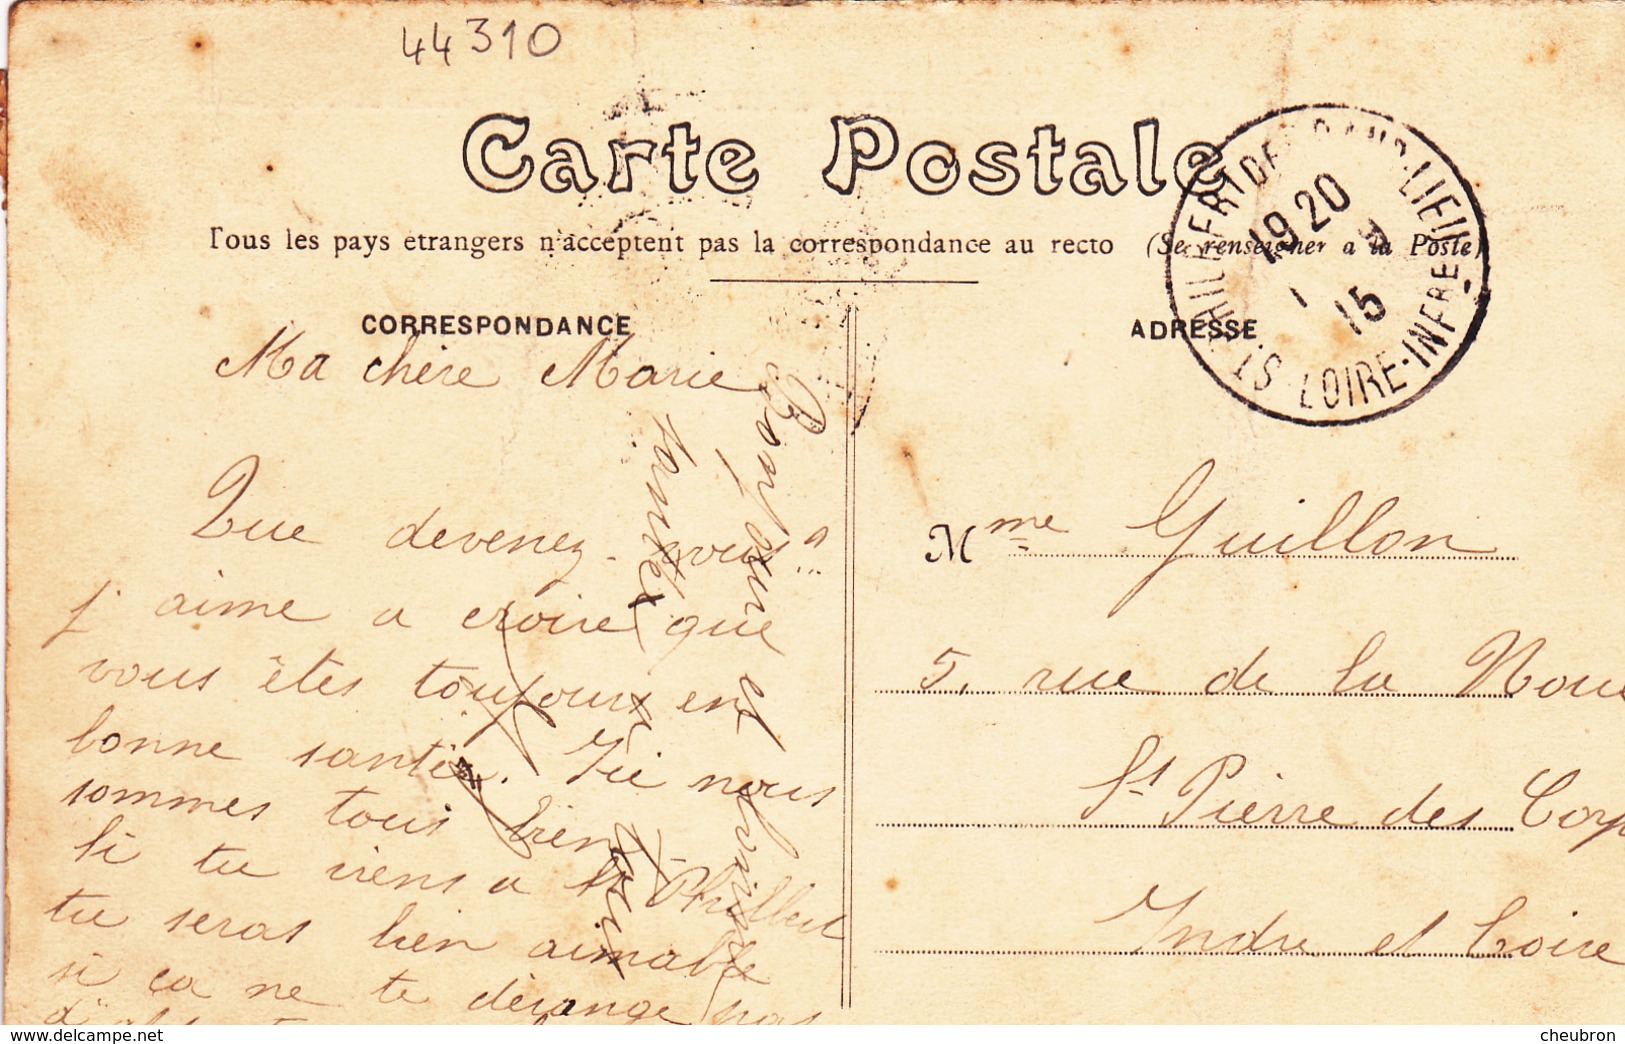 44310
Carte Postale
Tous les pays etrangers n'acceptent pas la correspondance au recto (Se renseigner a la Poste)
CORRESPONDANCE
ADRESSE
19 20
15
LOIRE-INFRE
Ma chère Marie
Que devenez-vous
j'aime a croire que
vous êtes toujours en
bonne santée. Ici nous
sommes tous bien
Si tu viens a St Philbert
tu seras bien aimable
si ça ne te dérange pas
Bonjour et
Mme Guillon
5. rue de la
St Pierre des Corps
Indre et Loire
cheubron
delcampe.net